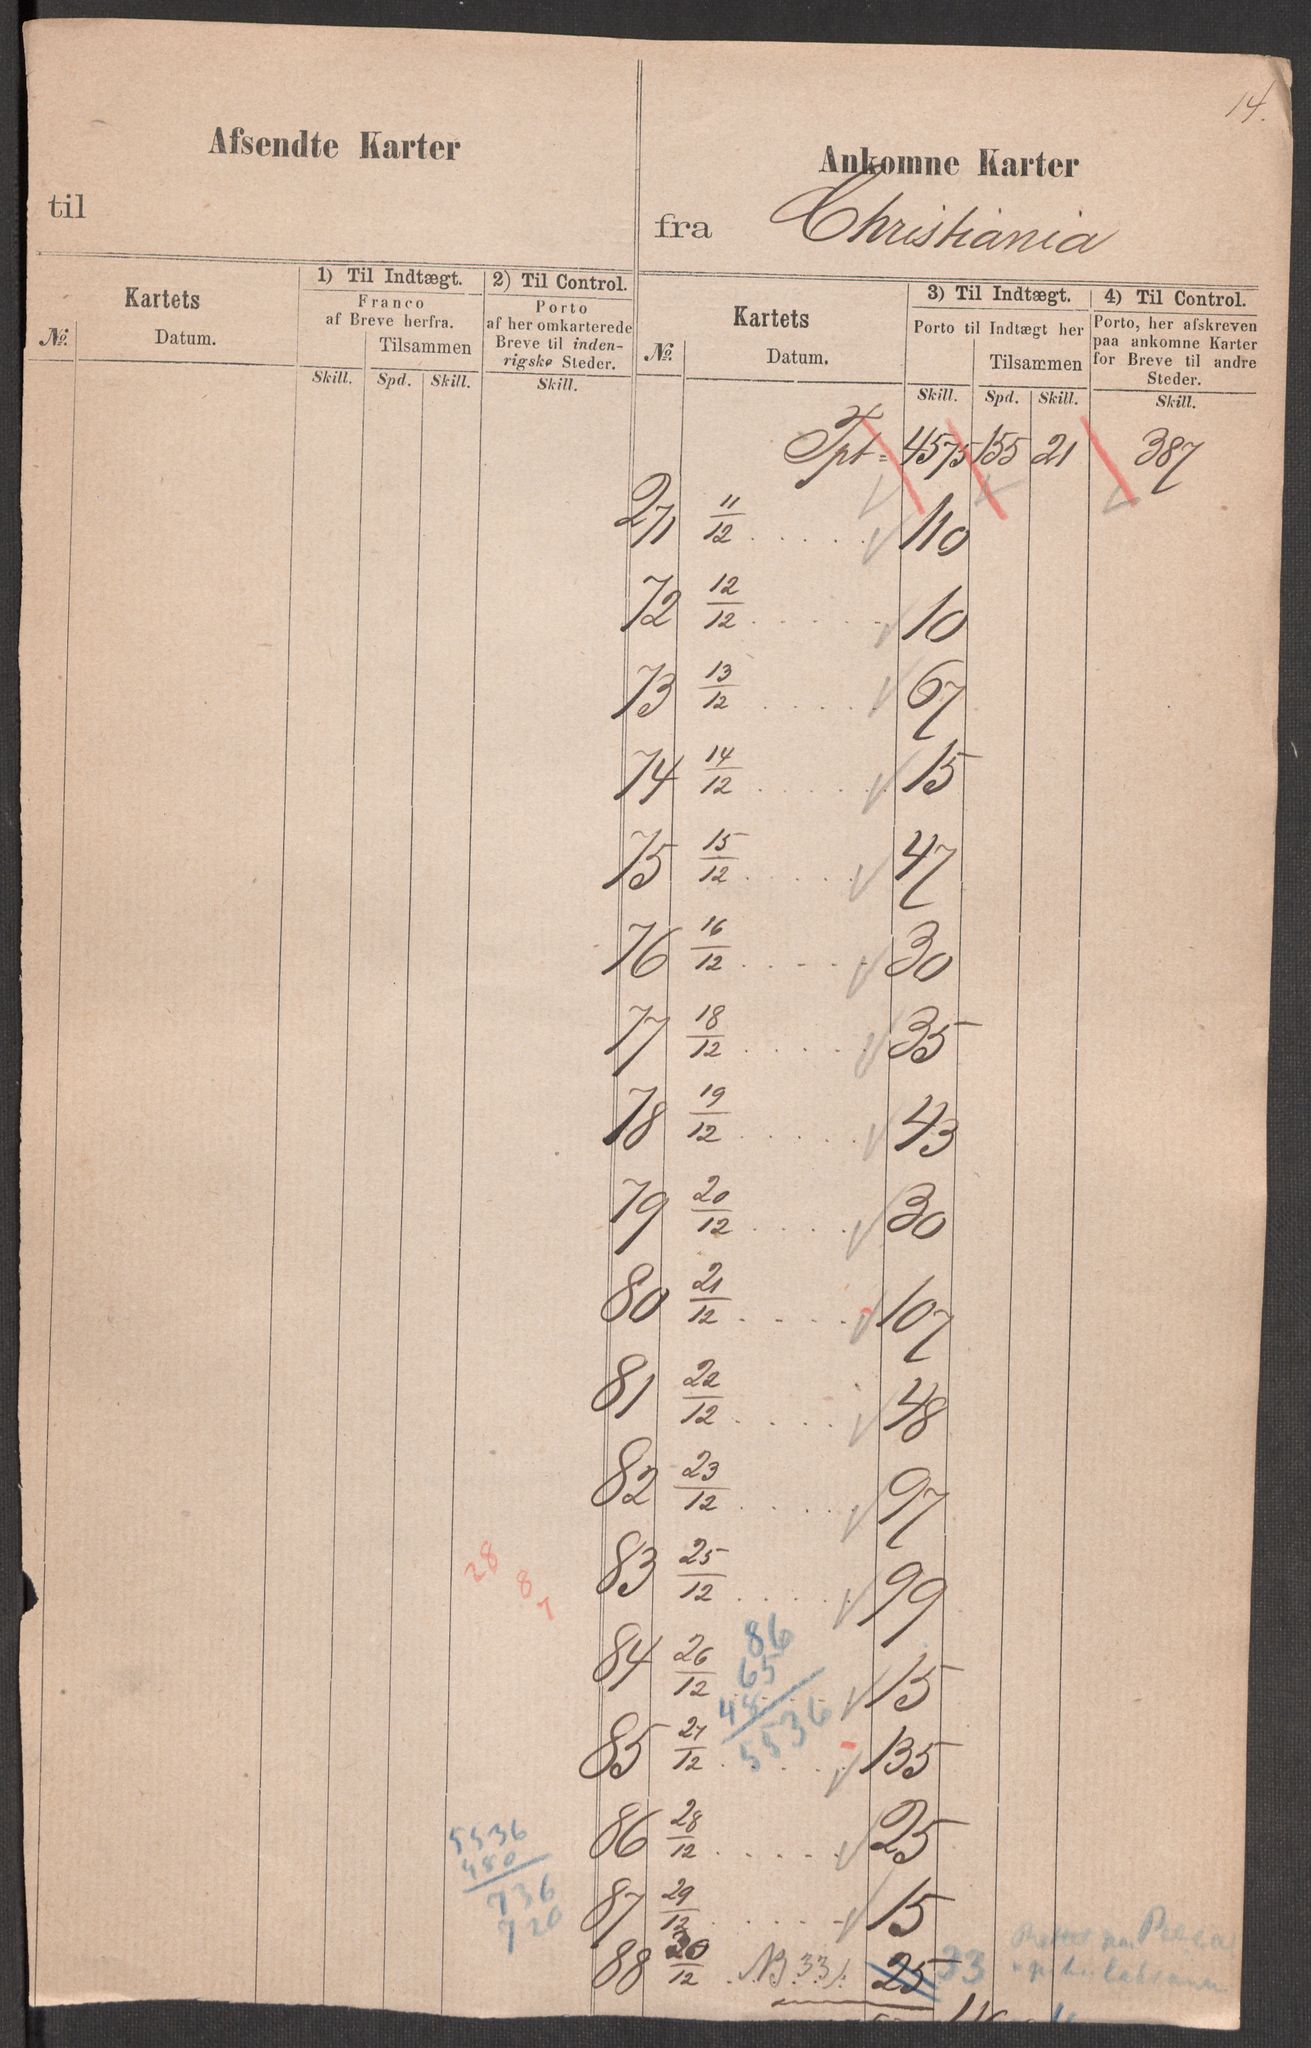 14.
Afsendte Karter
til
Ankomne Karter
fra Christiania
Kartets
No. Datum.
1) Til Indtægt.
Franco
af Breve herfra.
Tilsammen
Skill. Spd. Skill.
2) Til Control.
Porto
af her omkarterede
Breve til inden-
rigske Steder.
Skill.
Kartets
No. Datum.
3) Til Indtægt.
Porto til Indtægt her
Tilsammen
Skill. Spd. Skill.
4) Til Control.
Porto, her afskreven
paa ankomne Karter
for Breve til andre
Steder.
Skill.
Tpt = 4575 155 21 387
271 11/12 110
72 12/12 10
73 13/12 67
74 14/12 15
75 15/12 47
76 16/12 30
77 18/12 35
78 19/12 43
79 20/12 30
80 21/12 107
81 22/12 48
82 23/12 97
83 25/12 99
28
8
7
84 26/12 15
86
65
5536
85 27/12 135
86 28/12 25
5536
480
736
720
87 29/12 15
88 30/12 NB 33 25 33